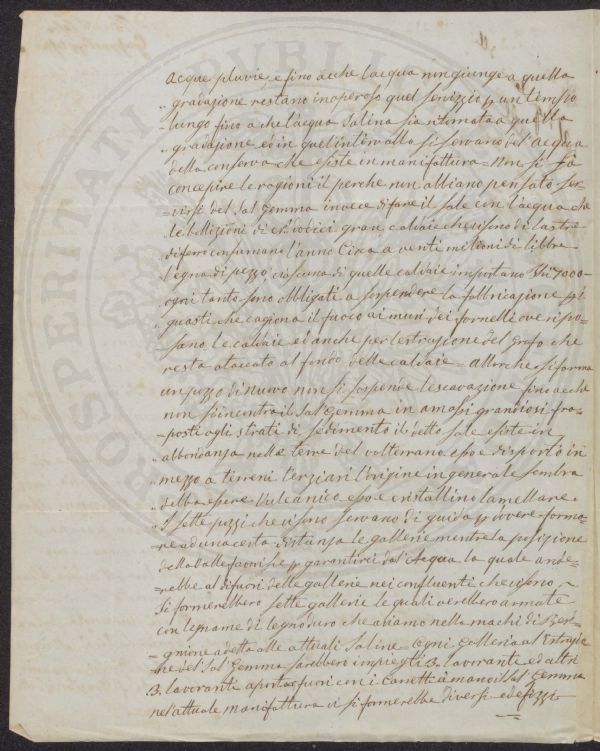 acque pluvie, e fino acche l'acqua non giunge a quella
gradazione restano inoperoso quel servizzio p un tempo
lungo fino a che l'acqua salina sia ritornata a quella
gradazione ed in quel intervallo si servano del acqua
della conserva che esiste in manifattura = Non si fà
concepire le ragioni il perche non abbiano pensato ser-
=virsi del Sal Gemma invece di fare il Sale con l'acqua che
le bollizioni di dodici gran caldaie che visono di lastre
di fero consumano l'anno Circa a venti milioni di libbre
legna di pezzo ciascuna di quelle caldaie importano 7000=
ogni tanto sono obbligati a sospendere la fabbricazione pi
guasti che cagiona il fuoco ai muri dei fornelli ove ripo-
sano le caldaie ed anche per l'estrazione del grafo che
resta ataccato al fondo delle caldaie = Allorche si forma
un pozzo di nuovo non si sospende l'escavazione fino acche
non s'incontra il Sal Gemma in amassi grandiosi fra-
-posti agli strati di sedimento il detto sale esiste in
abbondanza nelle terre del volterrano esso è disposto in
mezzo a terreni terziari l'origine in generale sembra
debba essere Vulcanico esso è cristallino lamellare.
I sette pozzi che visono servano di guida p dovere forma-
=re ad una certa distanza le gallerie mentre la posizione
della valle fuori si è p garantirci dal'Acqua la quale ande-
=rebbe al difuori delle gallerie nei confluenti che visono =
Si formerebbero sette gallerie le quali verebbero armate
con legname di legno duro che abiamo nella machi di Ber-
=gnione adetta alle attuali Saline = Ogni Galleria al Estrazio
ne del Sal Gemma sarebbero impiegti 3. lavoranti ed altri
3. lavoranti aportar fuori con i Carretti à mano il Sal Gemma
nel'attuale manifattura vi si formerebbe diversi edefizzi